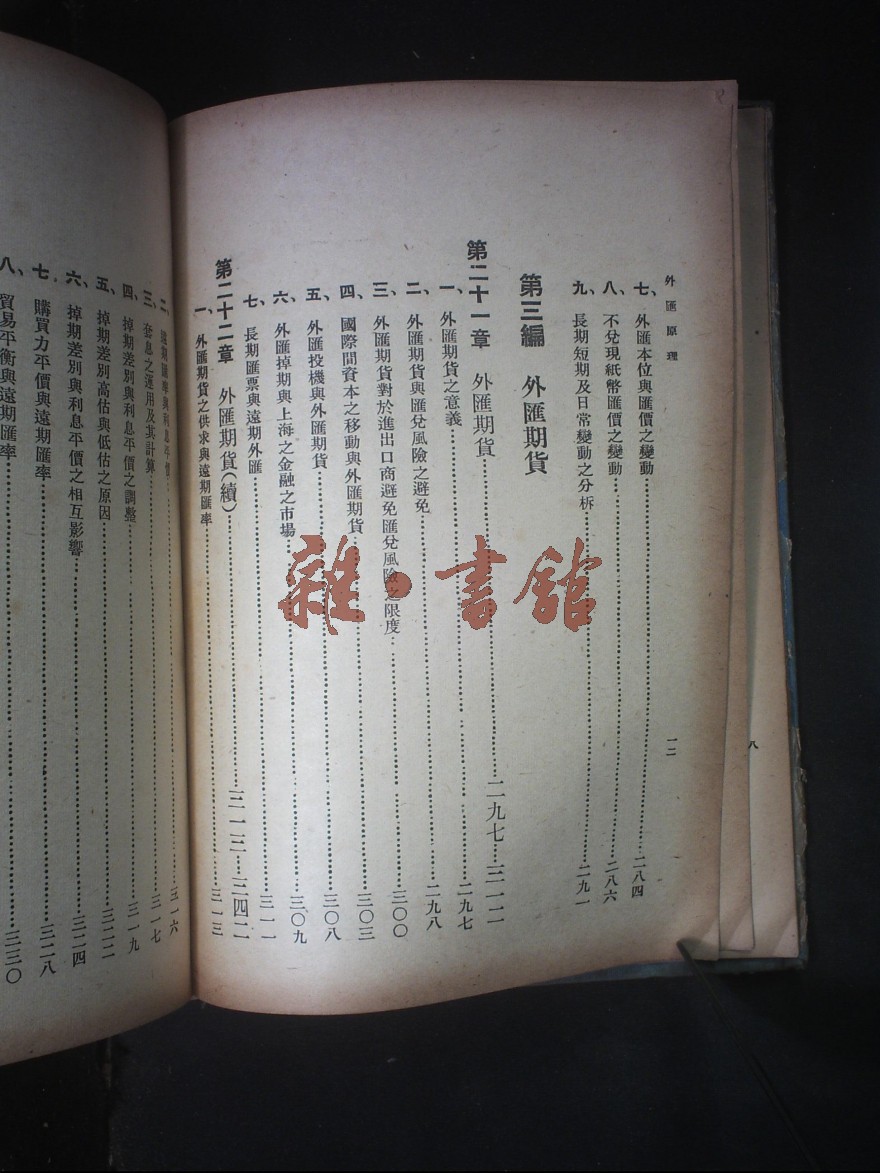 外匯原理
一二
七、外匯本位與匯價之變動……二八四
八、不兌現紙幣匯價之變動……二八六
九、長期短期及日常變動之分析……二九一
第三編 外匯期貨
第二十一章 外匯期貨……二九七—三一二
一、外匯期貨之意義……二九七
二、外匯期貨與匯兌風險之避免……二九八
三、外匯期貨對於進出口商避免匯兌風險之限度……三〇〇
四、國際間資本之移動與外匯期貨……三〇三
五、外匯投機與外匯期貨……三〇八
六、外匯掉期與上海之金融之市場……三〇九
七、長期匯票與遠期外匯……三一一
第二十二章 外匯期貨(續)……三一三—三四二
一、外匯期貨之供求與遠期匯率……三一三
二、遠期匯率與利息平價……三一六
三、套息之運用及其計算……三一七
四、掉期差別與利息平價之調整……三一九
五、掉期差別高估與低估之原因……三二二
六、掉期差別與利息平價之相互影響……三二四
七、購買力平價與遠期匯率……三二八
八、貿易平衡與遠期匯率……三三〇
八
雜·書館